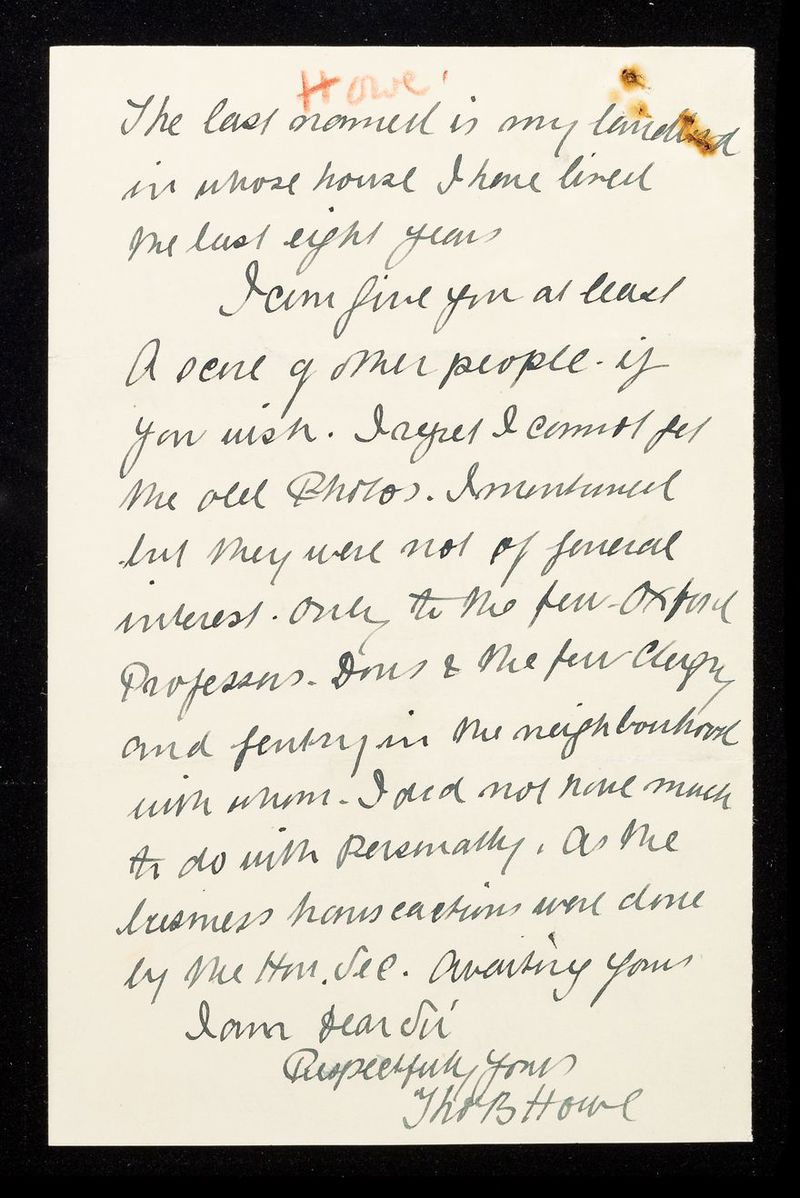 Howe'
The last named is my landlord
in whose house I have lived
the last eight years
I can give you at least
A score of other people - if
you wish. I regret I cannot get
the old Photos. I mentioned
but they were not of general
interest. only to the few - Oxford
Professors - Dons & the few Clergy
and gentry in the neighbourhood
with whom - I did not have much
to do with Personally, As the
business transactions were done
by the Hon. Sec. Awaiting yours
I am Dear Sir
Respectfully yours
Thos B Howe